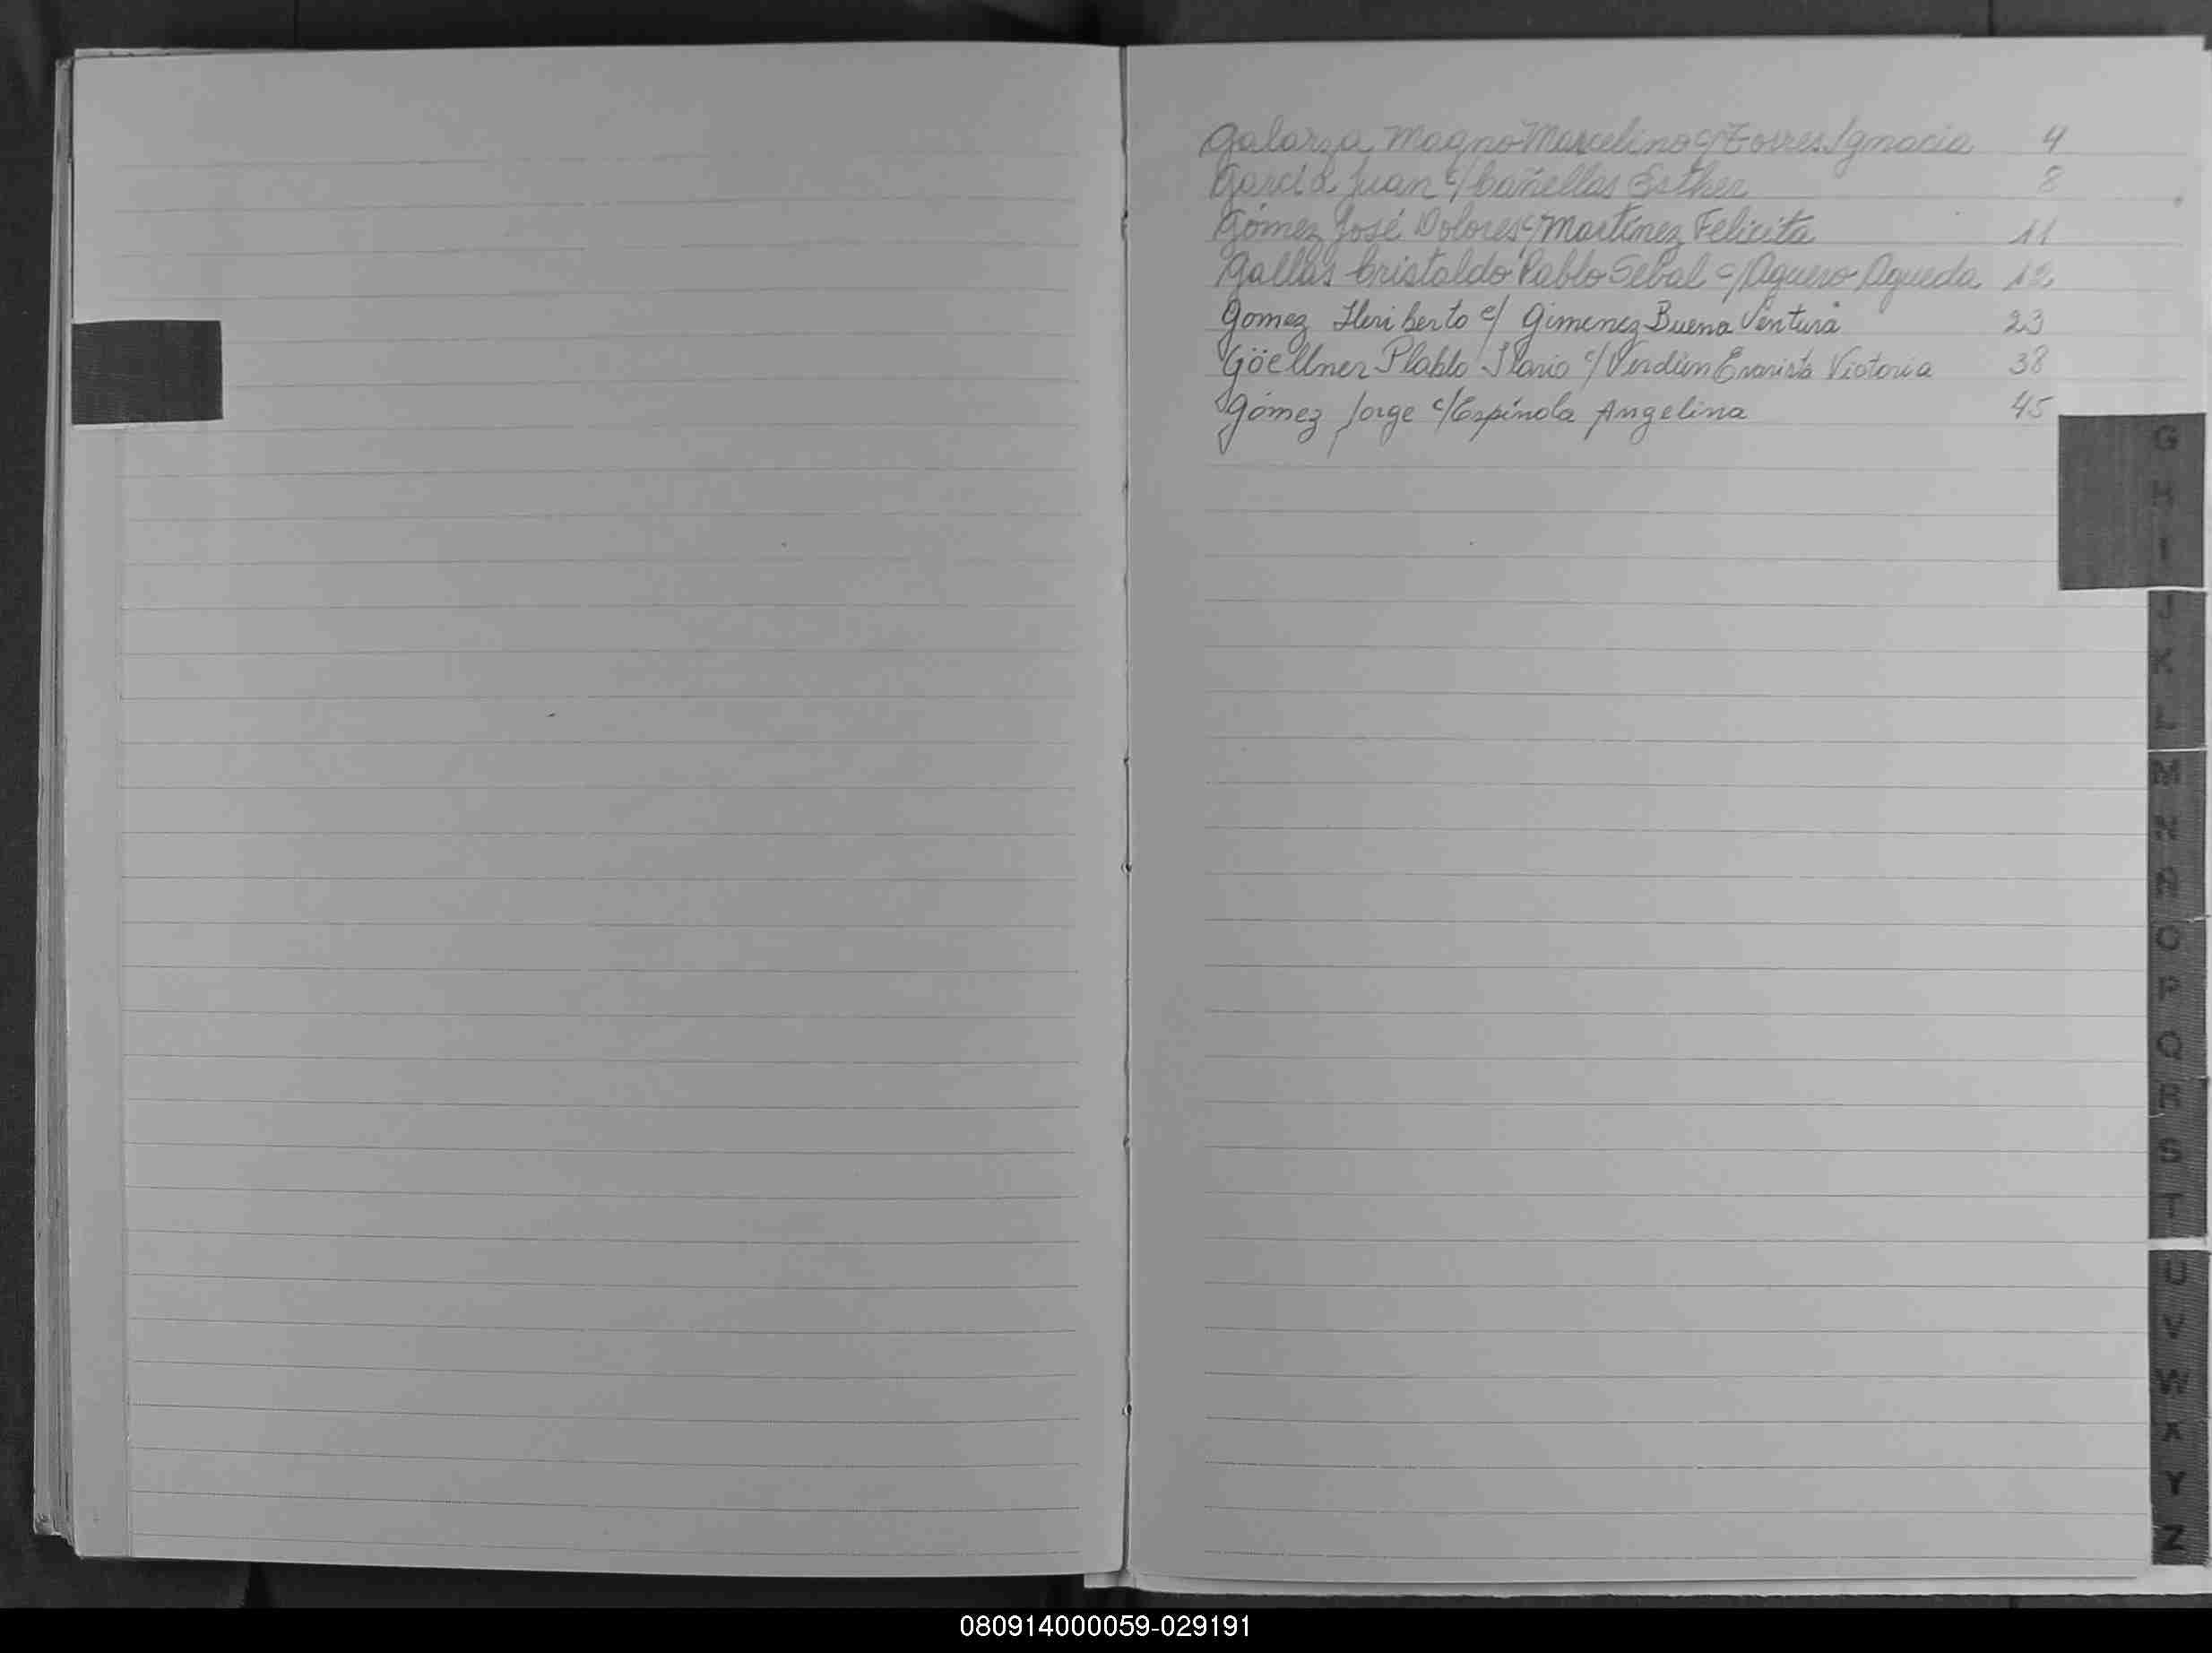 Galarza Magno Marcelino c/ Torres Ignacia 4
García Juan c/ Cañellas Esther 8
Gómez José Dolores c/ Martínez Felicita 11
Gallas Cristaldo Pablo c/ Aguero Agueda 12
Gomez Heriberto c/ Gimenez Buena Ventura 23
Göellner Plablo Ilario c/ Verdún Evarista Victoria 38
Gómez Jorge c/ Espínola Angelina 45
G
H
I
J
K
L
M
N
Ñ
O
P
Q
R
S
T
U
V
W
X
Y
Z
080914000059-029191